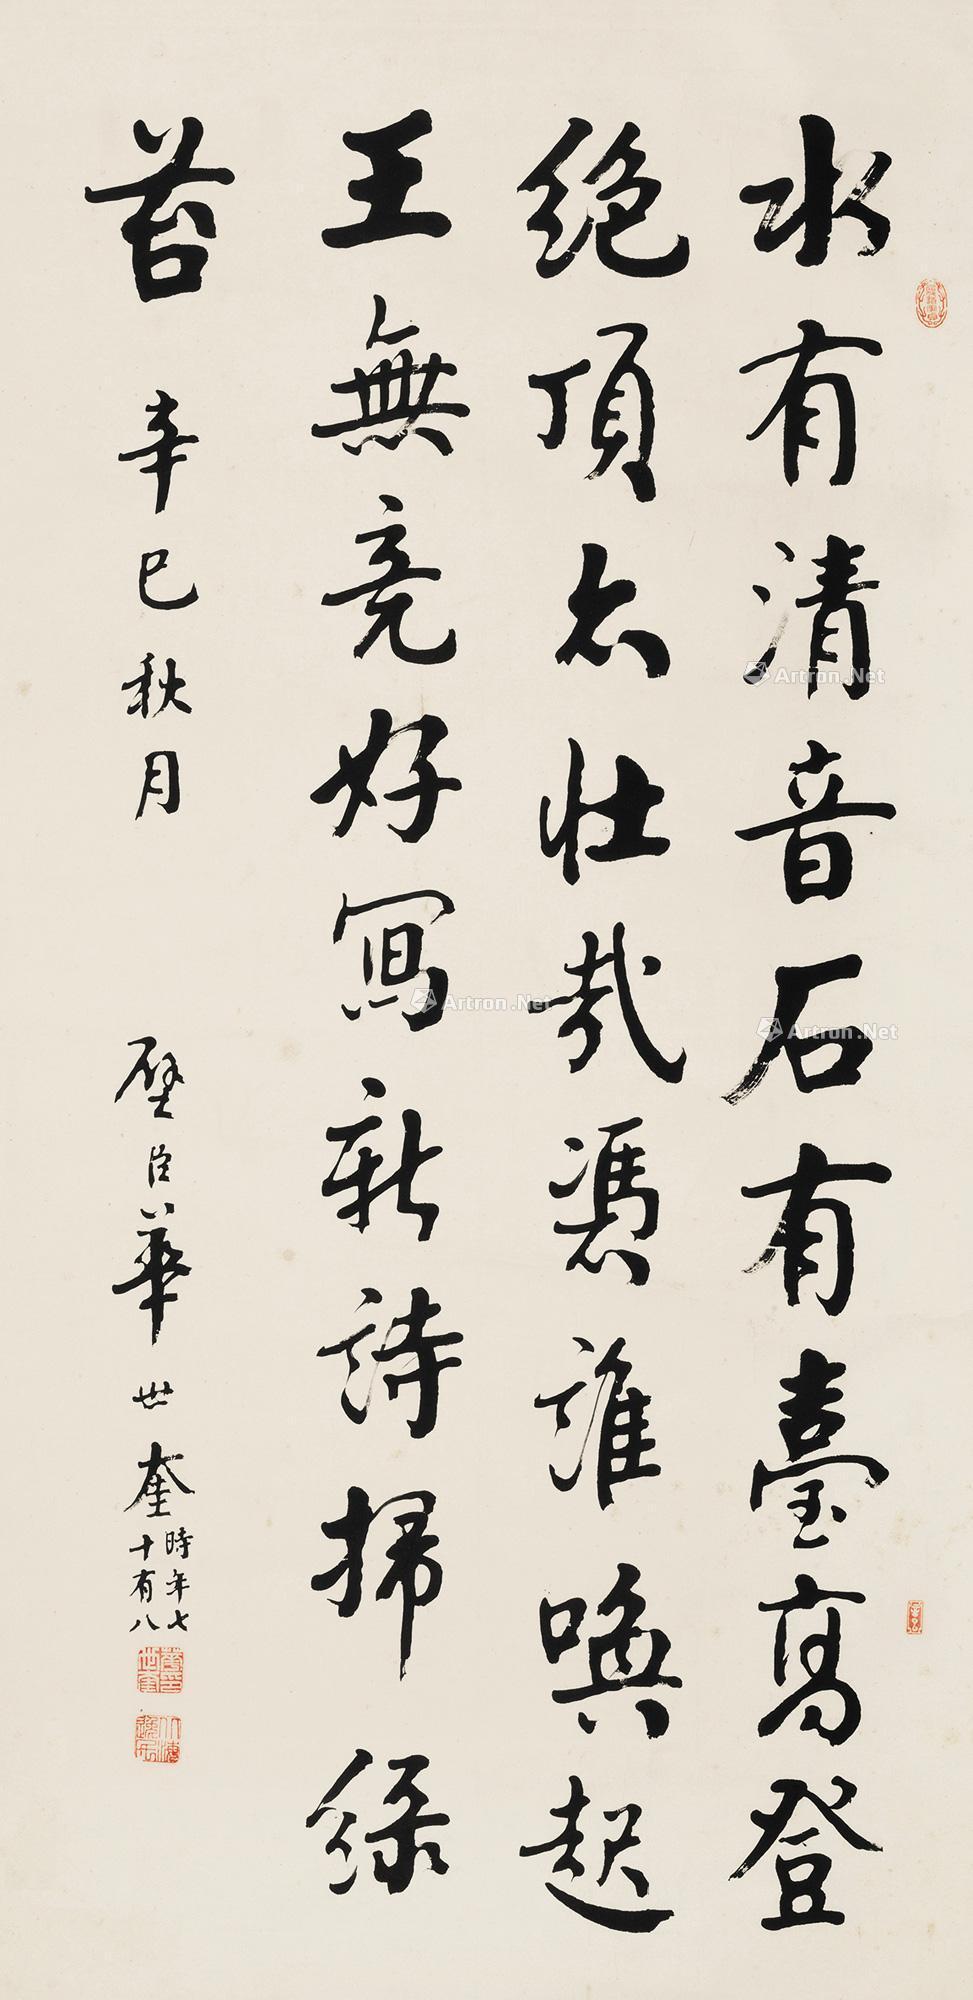 水有清音石有臺高登
絕頂亦壯哉憑誰喚起
王無竞好寫新詩掃綠
苔
辛巳秋月
璧臣華世奎
時年七
十有八
Artron.Net
Artron.Net
Artron.Net